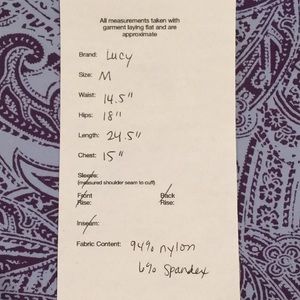 All measurements taken with
garment laying flat and are
approximate
Brand: Lucy
Size: M
Waist: 14.5"
Hips: 18"
Length: 24.5"
Chest: 15"
Sleeve:
(measured shoulder seam to cuff)
Front Back
Rise: Rise:
Inseam:
Fabric Content: 94% nylon
6% Spandex